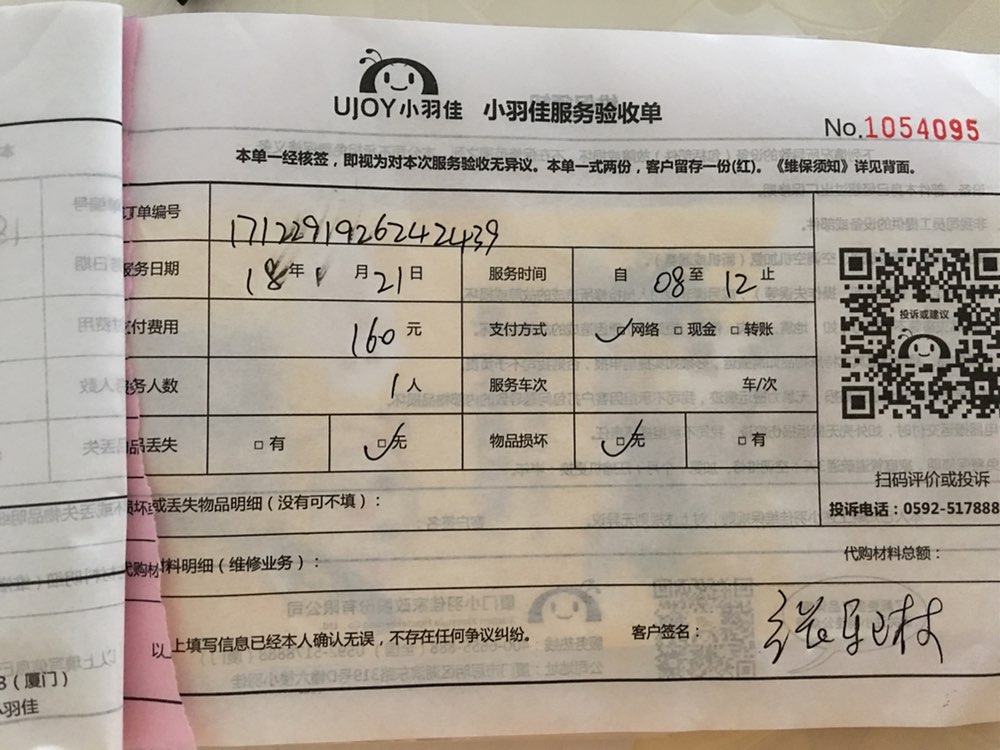 UJOY小羽佳 小羽佳服务验收单
No.1054095
本单一经核签，即视为对本次服务验收无异议。本单一式两份，客户留存一份(红)。《维保须知》详见背面。
订单编号 1712291926242439
服务日期 18年1月21日 服务时间 自 08 至 12 止
支付费用 160元 支付方式 网络 现金 转账
服务人数 1人 服务车次 车/次
物品丢失 有 无 物品损坏 无 有
投诉或建议
扫码评价或投诉
投诉电话：0592-517888
损坏或丢失物品明细（没有可不填）：
代购材料明细（维修业务）： 代购材料总额：
以上填写信息已经本人确认无误，不存在任何争议纠纷。 客户签名：
（厦门）
小羽佳